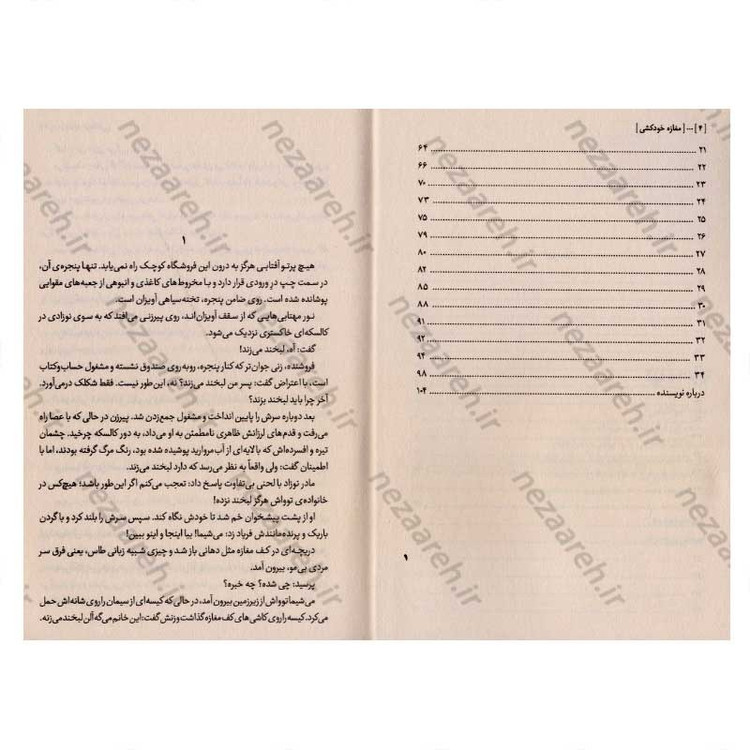 [ ۴ ] ... [ مغازه خودکشی ]
۲۱ ........ ۶۴
۲۲ ........ ۶۶
۲۳ ........ ۷۰
۲۴ ........ ۷۳
۲۵ ........ ۷۵
۲۶ ........ ۷۹
۲۷ ........ ۸۰
۲۸ ........ ۸۲
۲۹ ........ ۸۵
۳۰ ........ ۸۸
۳۱ ........ ۹۱
۳۲ ........ ۹۲
۳۳ ........ ۹۴
۳۴ ........ ۹۸
درباره نویسنده ........ ۱۰۴
۹
۱
هیچ پرتو آفتابی هرگز به درون این فروشگاه کوچک راه نمی‌یابد. تنها پنجره‌ی آن،
در سمت چپ در ورودی قرار دارد و با مخروط‌های کاغذی و انبوهی از جعبه‌های مقوایی
پوشانده شده است. روی ضامن پنجره، تخته‌سیاهی آویزان است.
نور مهتابی‌هایی که از سقف آویزان‌اند، روی پیرزنی می‌افتد که به سوی نوزادی در
کالسکه‌ای خاکستری نزدیک می‌شود.
گفت: آه، لبخند می‌زند!
فروشنده، زنی جوان‌تر که کنار پنجره، روبه‌روی صندوق نشسته و مشغول حساب‌وکتاب
است، با اعتراض گفت: پسر من لبخند می‌زند؟ نه، این‌طور نیست. فقط شکلک درمی‌آورد.
آخر چرا باید لبخند بزند؟
بعد دوباره سرش را پایین انداخت و مشغول جمع‌زدن شد. پیرزن در حالی که با عصا راه
می‌رفت و قدم‌های لرزانش ظاهری نامطمئن به او می‌داد، به دور کالسکه چرخید. چشمان
تیره و افسرده‌اش که با لایه‌ای از آب‌مروارید پوشیده شده بود، رنگ مرگ گرفته بودند، اما با
اطمینان گفت: ولی واقعاً به نظر می‌رسد که دارد لبخند می‌زند.
مادر نوزاد با لحنی بی‌تفاوت پاسخ داد: تعجب می‌کنم اگر این‌طور باشد؛ هیچ‌کس در
خانواده‌ی تواش هرگز لبخند نزده!
او از پشت پیشخوان خم شد تا خودش نگاه کند. سپس سرش را بلند کرد و با گردن
باریک و پرنده‌مانندش فریاد زد: می‌شیما! بیا اینجا و اینو ببین!
دریچه‌ای در کف مغازه مثل دهانی باز شد و چیزی شبیه زبانی طاس، یعنی فرق سر
مردی بی‌مو، بیرون آمد.
پرسید: چی شده؟ چه خبره؟
می‌شیما تواش از زیرزمین بیرون آمد، در حالی که کیسه‌ای از سیمان را روی شانه‌اش حمل
می‌کرد. کیسه را روی کاشی‌های کف مغازه گذاشت و زنش گفت: این خانم می‌گه آلن لبخند می‌زنه.
nezaareh.ir